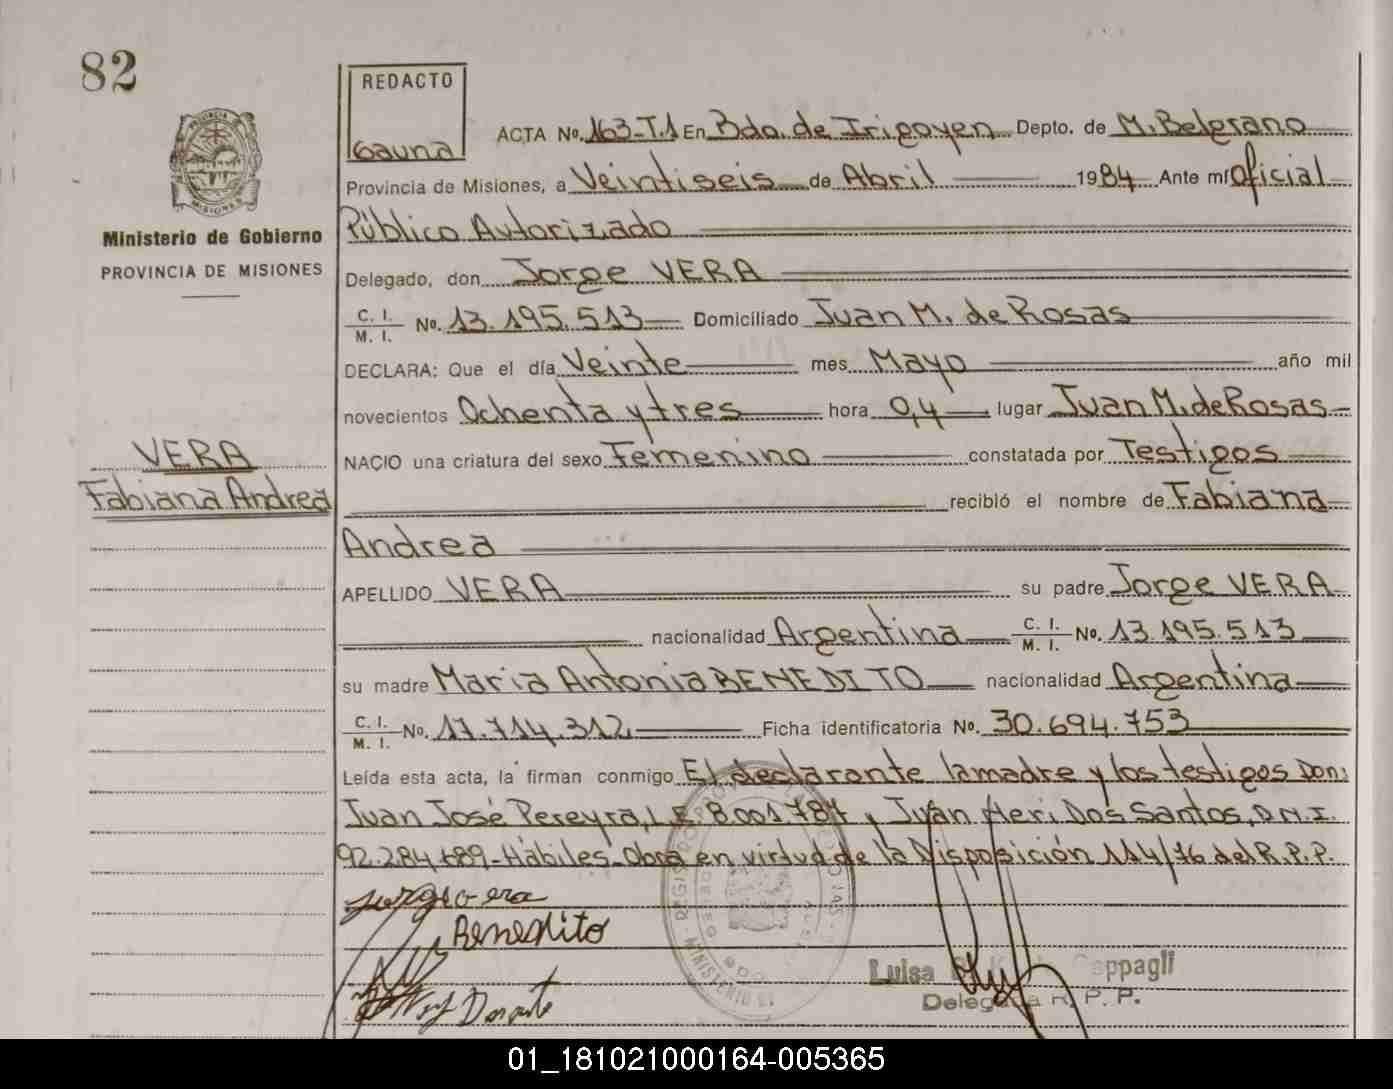 82
REDACTO
Gauna
PROVINCIA DE
MISIONES
Ministerio de Gobierno
PROVINCIA DE MISIONES
VERA
Fabiana Andrea
ACTA No. 163-T.1 En Bdo. de Irigoyen Depto. de M. Belgrano
Provincia de Misiones, a Veintiseis de Abril 1984 Ante mí Oficial
Público Autorizado
Delegado, don Jorge VERA
C. I. / M. I. No. 13.195.513 Domiciliado Juan M. de Rosas
DECLARA: Que el día Veinte mes Mayo año mil
novecientos Ochenta y tres hora 0,4 lugar Juan M. de Rosas
NACIO una criatura del sexo Femenino constatada por Testigos
recibió el nombre de Fabiana
Andrea
APELLIDO VERA su padre Jorge VERA
nacionalidad Argentina C. I. / M. I. No. 13.195.513
su madre Maria Antonia BENEDITO nacionalidad Argentina
C. I. / M. I. No. 17.714.312 Ficha identificatoria No. 30.694.753
Leída esta acta, la firman conmigo El declarante la madre y los testigos Don:
Juan José Pereyra, L.E. 8.001.787 y Juan Neri Dos Santos, D.N.I.
92.284.689-Hábiles-Obra en virtud de la Disposición 114/76 del R.P.P.
Benedito
Luisa
Delegada R. P. P.
01_181021000164-005365